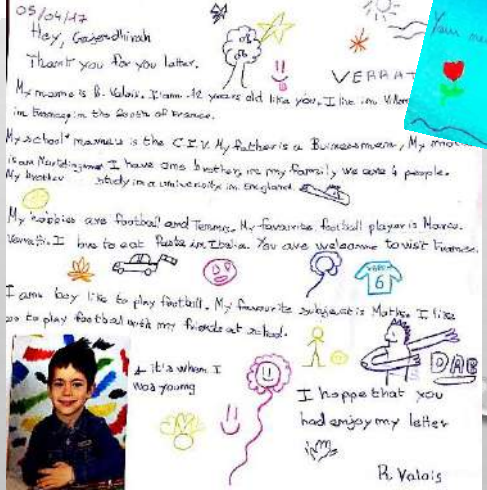 05/04/17
Hey, Gajendhirah
Thank you for you latter.
VERRAT
My name is B. Valois. I am 12 years old like you. I live in
in France in the South of France.
My school* name's is the C.I.V. My father is a Businessman, My
I have one brother, in my family we are 4 people.
My brother study in a university in England.
My hobbies are football and Tennis. My favourite football player is Marco.
Verratti. I love to eat Pasta in Italia. You are welcome to visit France.
6
I am boy like to play football. My favourite subject is Maths. I like
so to play football with my friends at school.
it's when I
was young
DAB
I hoppe that you
had enjoy my letter
R. Valois